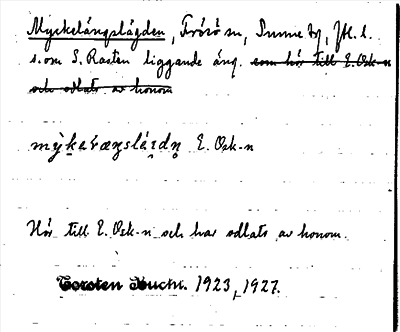 Myckelängslägden, Frösö sn, Sunne tg, Jtl. l.
s.om S. Rasten liggande äng. som hör till E. Osk-n
och odlats av honom
E. Osk-n
Hör till E. Osk-n och har odlats av honom.
Torsten Bucht. 1923, 1927.